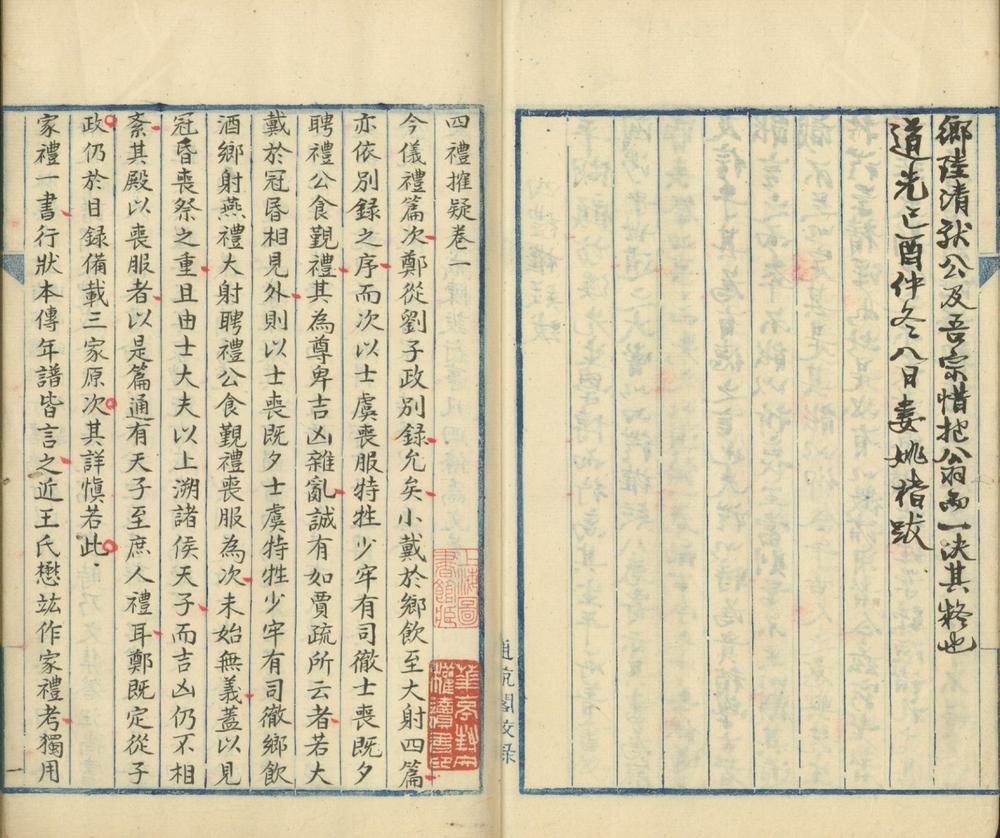 鄉陸清獻公及吾宗惜抱翁而一決其疑也
道光己酉仲冬八日婁姚椿跋
四禮搉疑卷一
今儀禮篇次鄭從劉子政別錄允矣小戴於鄉飲至大射四篇
亦依別錄之序而次以士虞喪服特牲少牢有司徹士喪既夕
聘禮公食覲禮其為尊卑吉凶雜亂誠有如賈疏所云者若大
戴於冠昏相見外則以士喪既夕士虞特牲少牢有司徹鄉飲
酒鄉射燕禮大射聘禮公食覲禮喪服為次未始無義蓋以見
冠昏喪祭之重且由士大夫以上溯諸侯天子而吉凶仍不相
紊其殿以喪服者以是篇通有天子至庶人禮耳鄭既定從子
政仍於目録備載三家原次其詳慎若此
家禮一書行狀本傳年譜皆言之近王氏懋竑作家禮考獨用
一
上海圖書館藏
華亭封文權讀書印
校錄